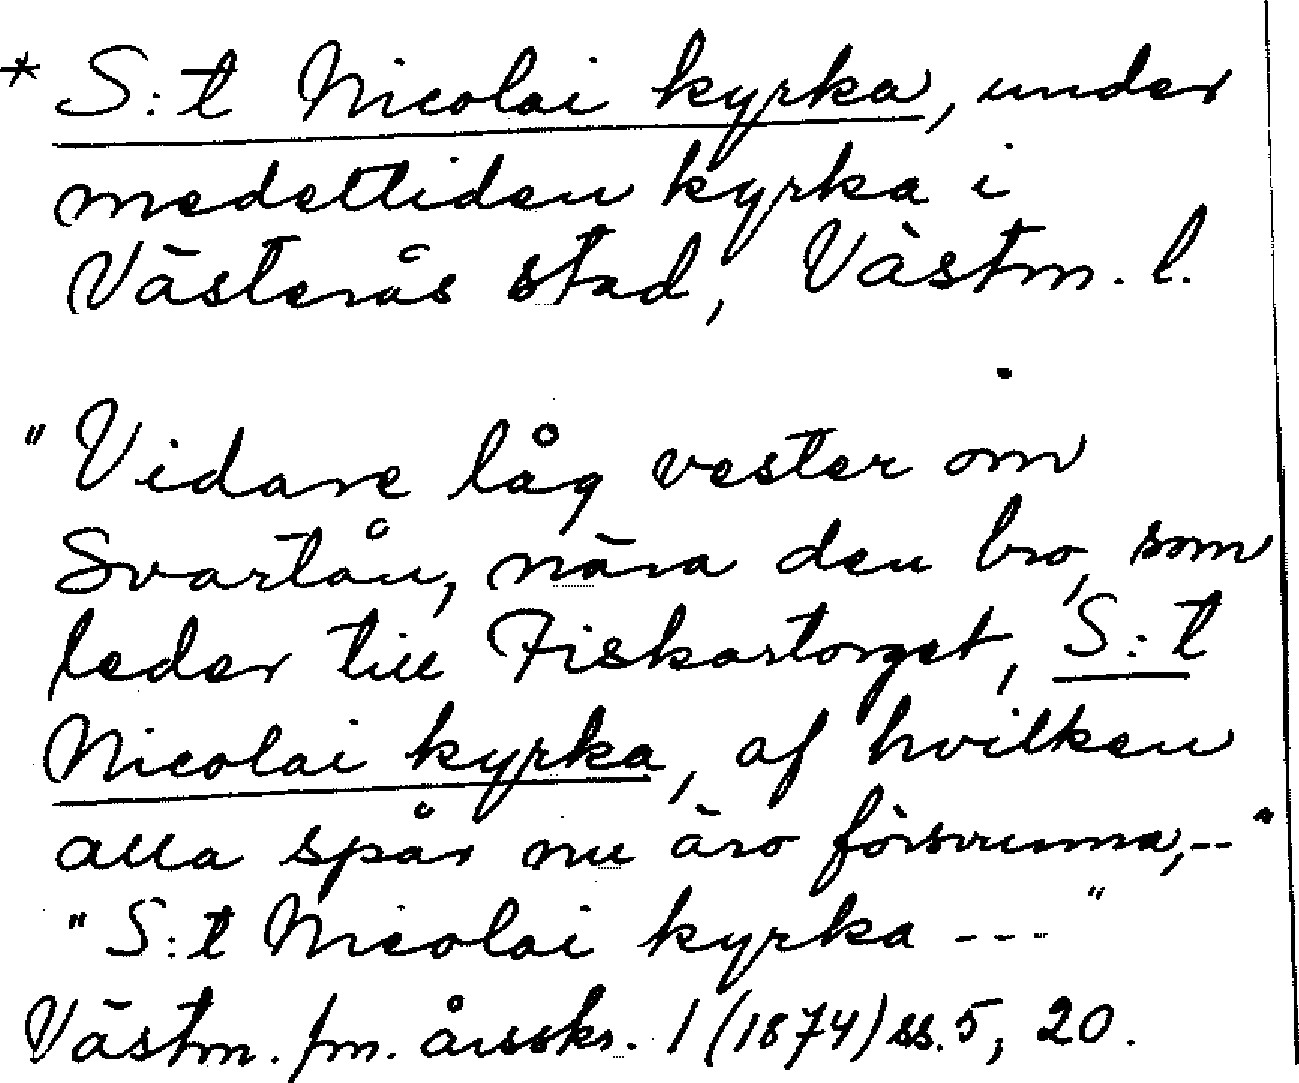 * S:t Nicolai kyrka, under
medeltiden kyrka i
Västerås stad, Västm. l.
"Vidare låg vester om
Svartån, nära den bro, som
leder till Fiskartorget, S:t
Nicolai kyrka, af hvilken
alla spår nu äro försvunna,--"
"S:t Nicolai kyrka ---"
Västm. fm. årsskr. 1 (1874) ss. 5, 20.